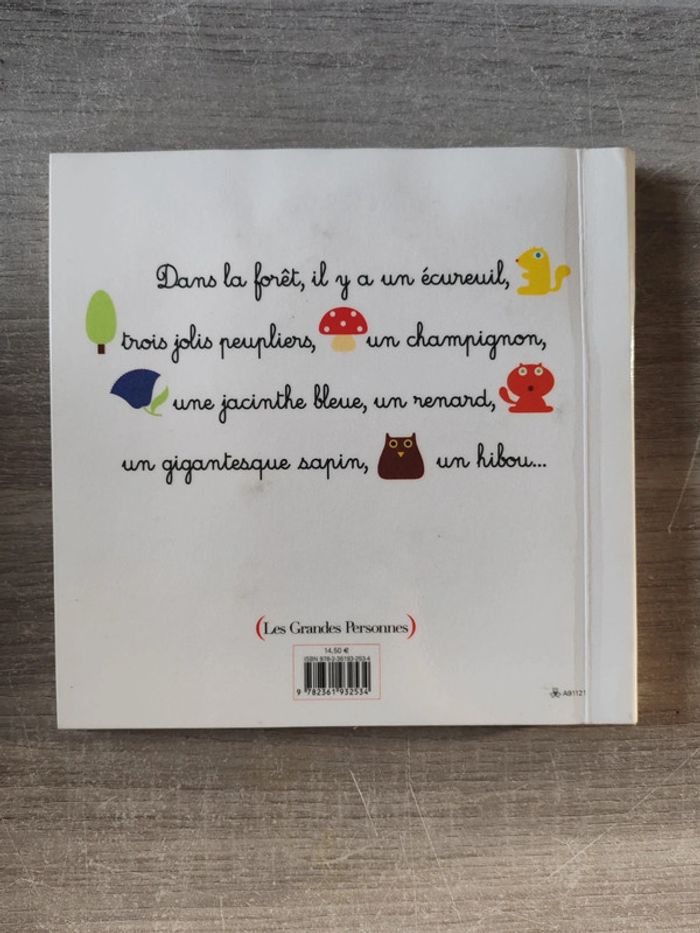 Dans la forêt, il y a un écureuil,
trois jolis peupliers, un champignon,
une jacinthe bleue, un renard,
un gigantesque sapin, un hibou...
(Les Grandes Personnes)
14,50 €
ISBN 978-2-36193-253-4
9 782361 932534
A91121